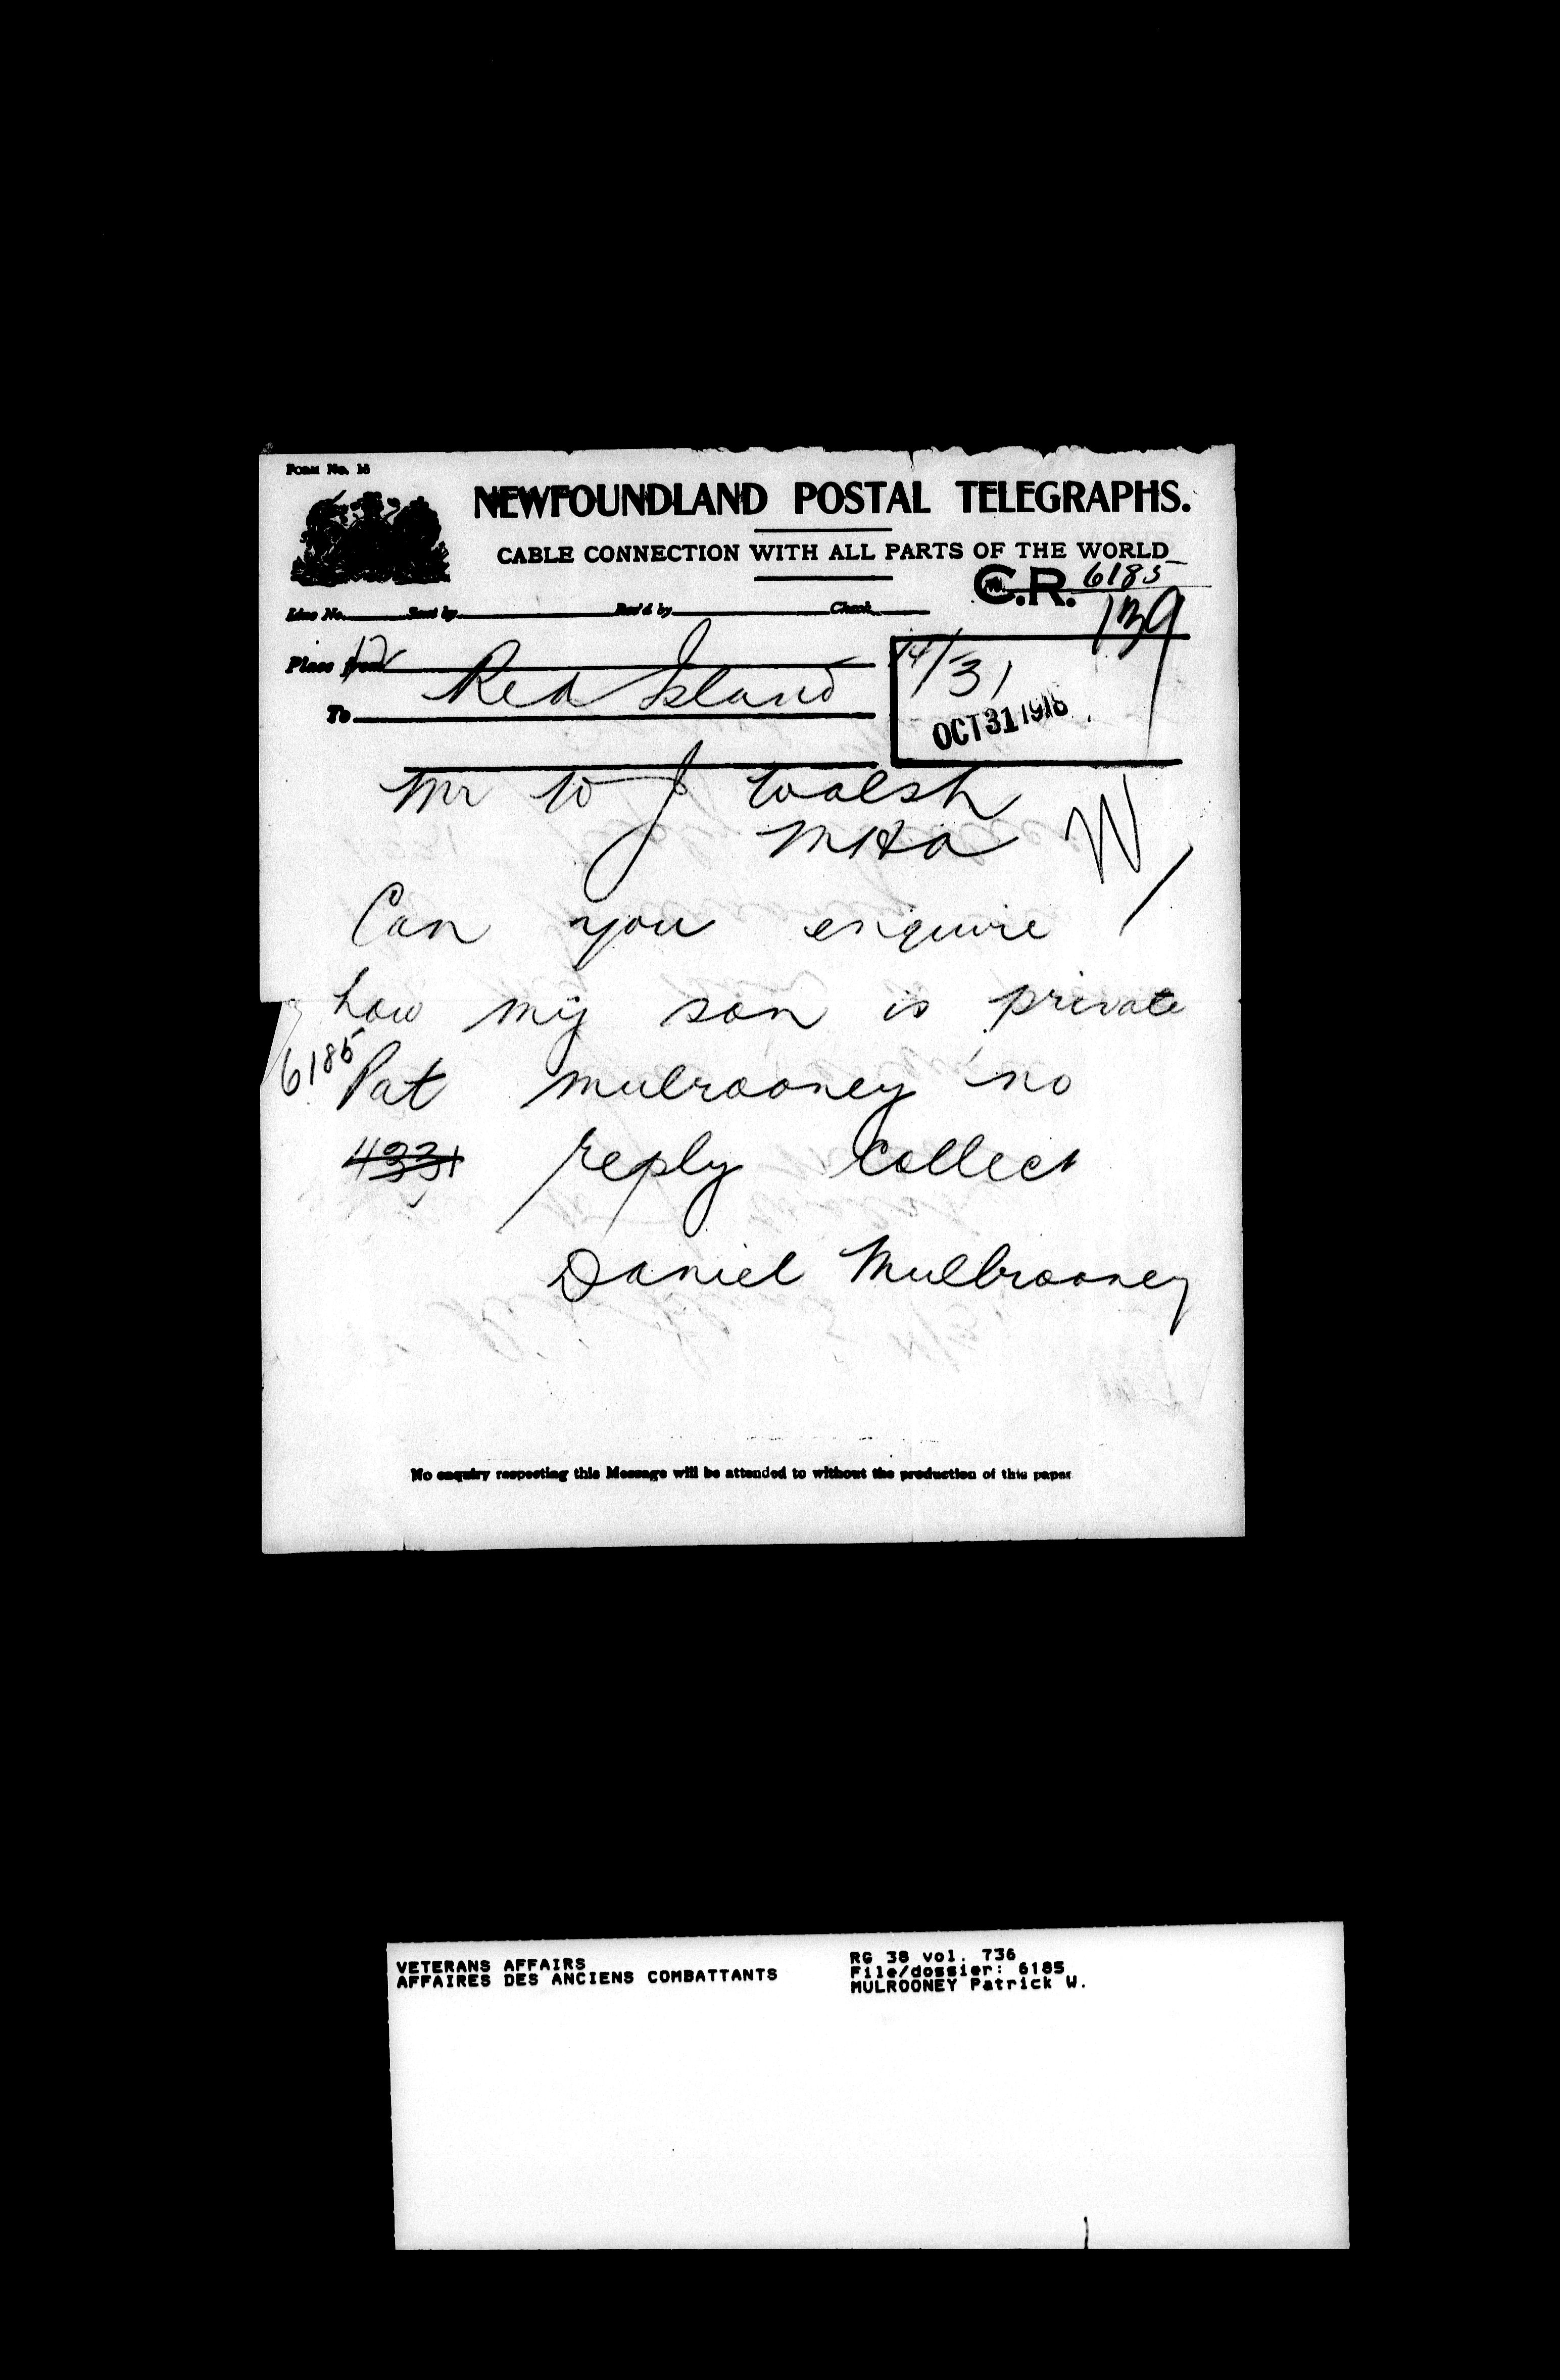 Form No. 16
NEWFOUNDLAND POSTAL TELEGRAPHS.
CABLE CONNECTION WITH ALL PARTS OF THE WORLD
C.R. 6185
Line No. Sent by Rec'd by Check
139
Place from
Red Island
14/31
To
OCT 31 1918
Mr W J Walsh
MHA
Can you enquire
how my son is private
6185
Pat mulrooney no
4331 reply collect
Daniel Mullrooney
No enquiry respecting this Message will be attended to without the production of this paper
VETERANS AFFAIRS
AFFAIRES DES ANCIENS COMBATTANTS
RG 38 vol. 736
File/dossier: 6185
MULROONEY Patrick W.